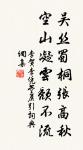 吴丝蜀桐张高秋
空山凝云颓不流
李贺李凭箜篌引词典
网集